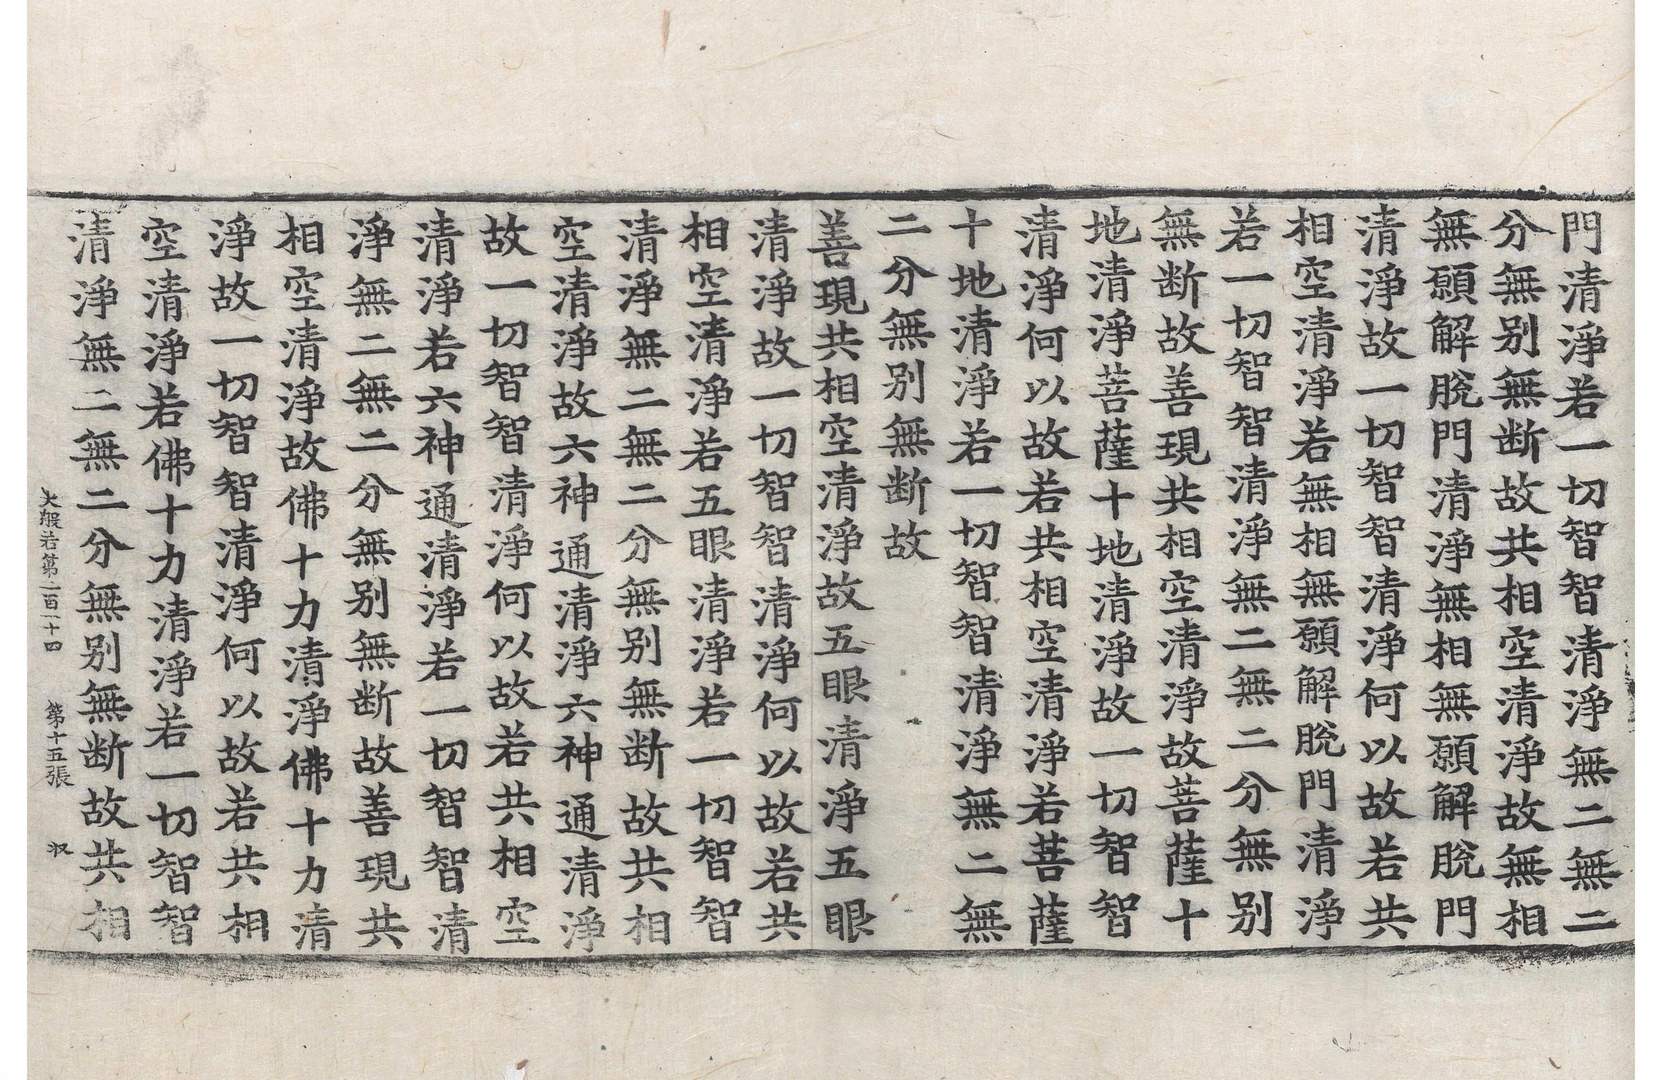 門清淨若一切智智清淨無二無二
分無别無断故共相空清淨故無相
無願解脫門清淨無相無願解脫門
清淨故一切智智清淨何以故若共
相空清淨若無相無願解脫門清淨
若一切智智清淨無二無二分無别
無断故善現共相空清淨故菩薩十
地清淨菩薩十地清淨故一切智智
清淨何以故若共相空清淨若菩薩
十地清淨若一切智智清淨無二無
二分無别無断故
善現共相空清淨故五眼清淨五眼
清淨故一切智智清淨何以故若共
相空清淨若五眼清淨若一切智智
清淨無二無二分無别無断故共相
空清淨故六神通清淨六神通清淨
故一切智智清淨何以故若共相空
清淨若六神通清淨若一切智智清
淨無二無二分無别無断故善現共
相空清淨故佛十力清淨佛十力清
淨故一切智智清淨何以故若共相
空清淨若佛十力清淨若一切智智
清淨無二無二分無别無断故共相
大般若第二百一十四　第十五張　収